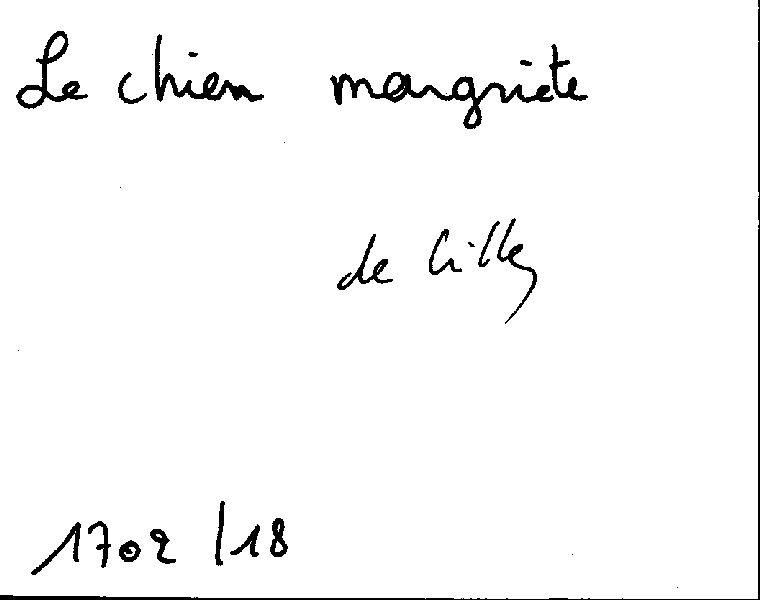 Le chien margriete
de Lille
1702/18